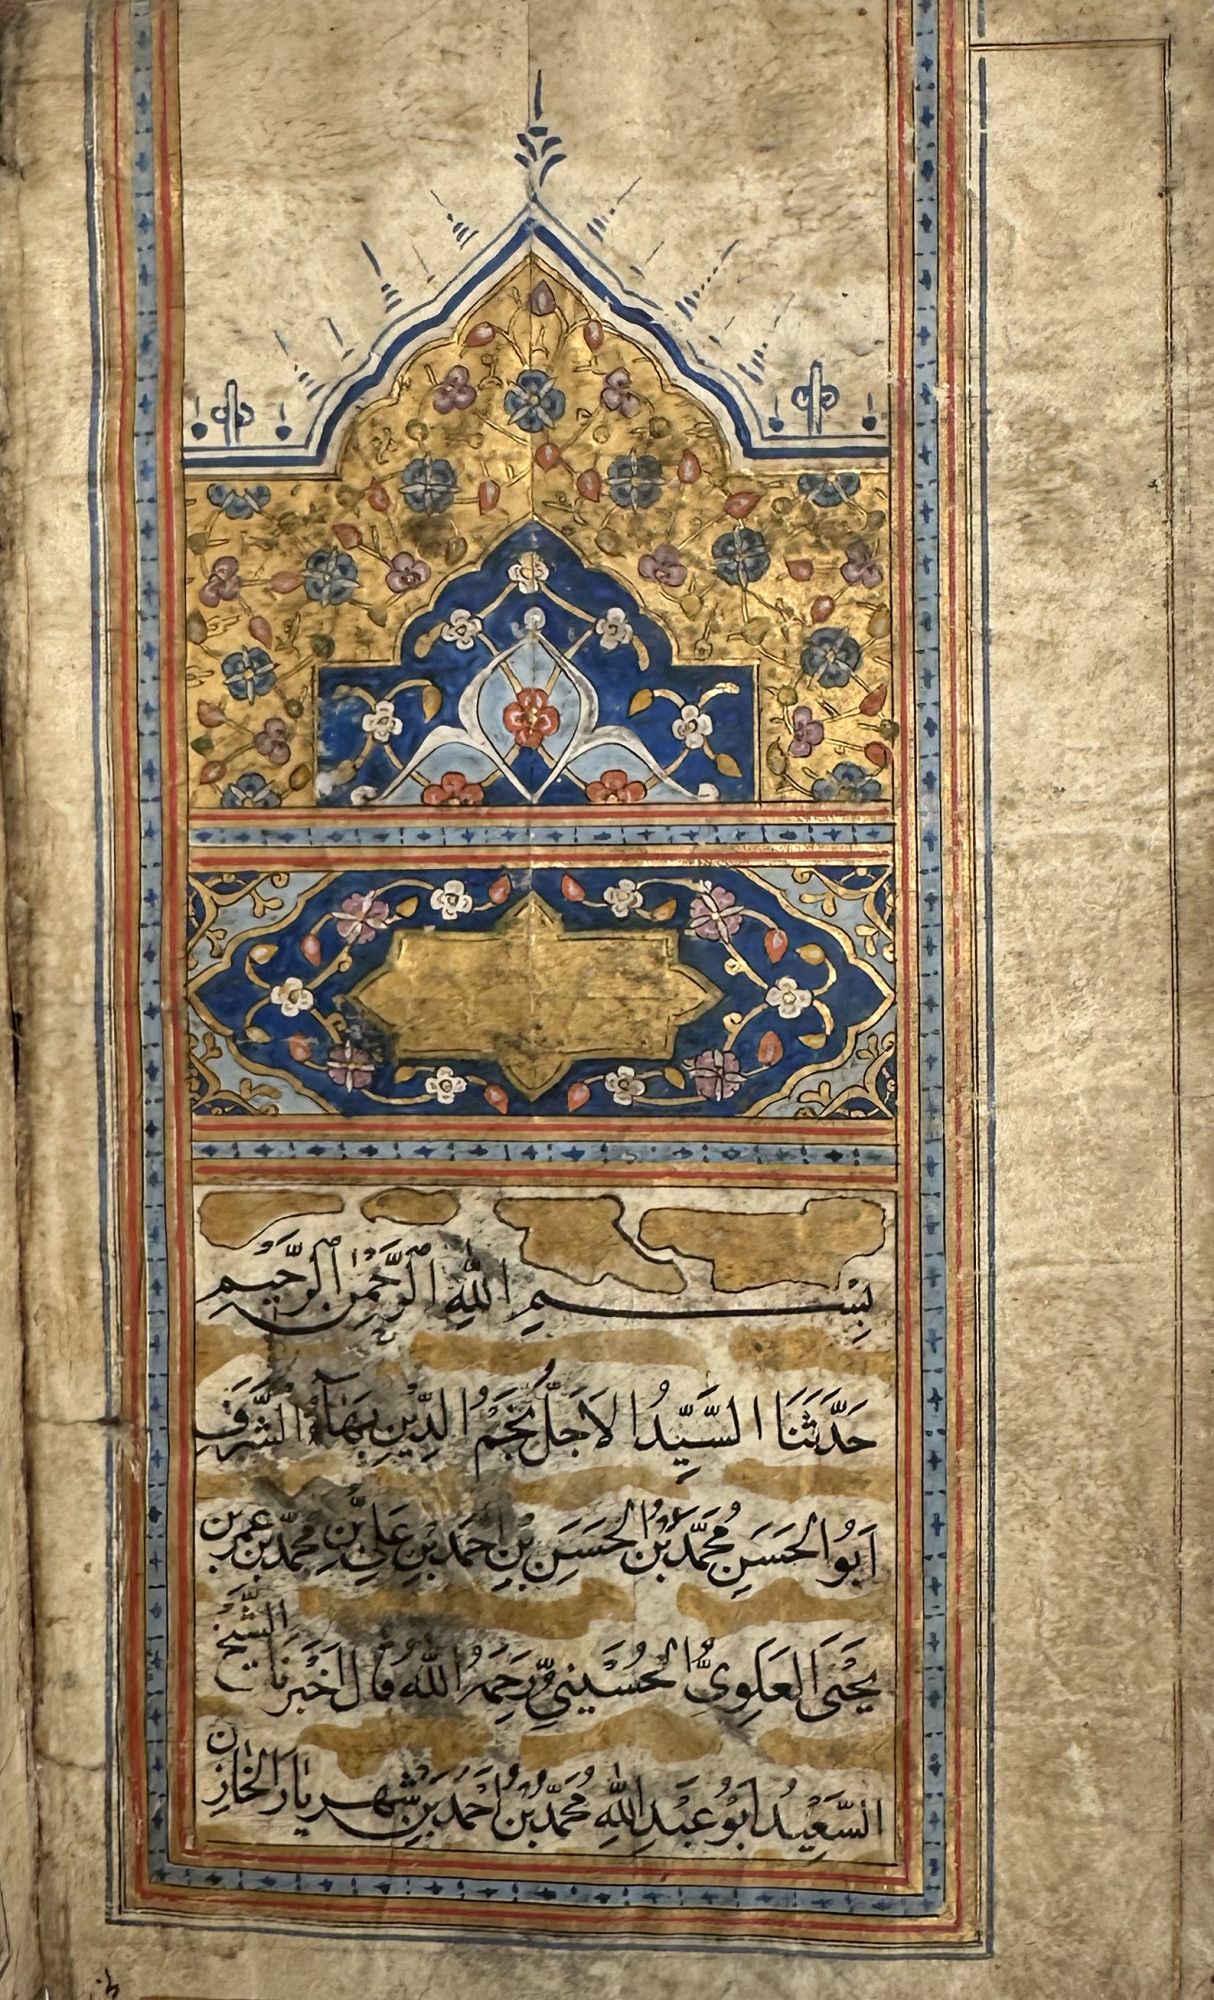 بِسْمِ اللهِ الرَّحْمٰنِ الرَّحِيْمِ
حَدَّثَنَا السَّيِّدُ الاَجَلُّ نَجْمُ الدِّيْنِ بَهَآءُ الشَّرَفِ
اَبُو الْحَسَنِ مُحَمَّدُ بْنُ الْحَسَنِ بْنِ اَحْمَدَ بْنِ عَلِيِّ بْنِ مُحَمَّدِ بْنِ عُمَرَ بْنِ
يَحْيَى الْعَلَوِيُّ الْحُسَيْنِيُّ رَحِمَهُ اللهُ قَالَ اَخْبَرَنَا الشَّيْخُ
السَّعِيْدُ اَبُو عَبْدِ اللهِ مُحَمَّدُ بْنُ اَحْمَدَ بْنِ شَهْرِيَارَ الْخَازِنُ